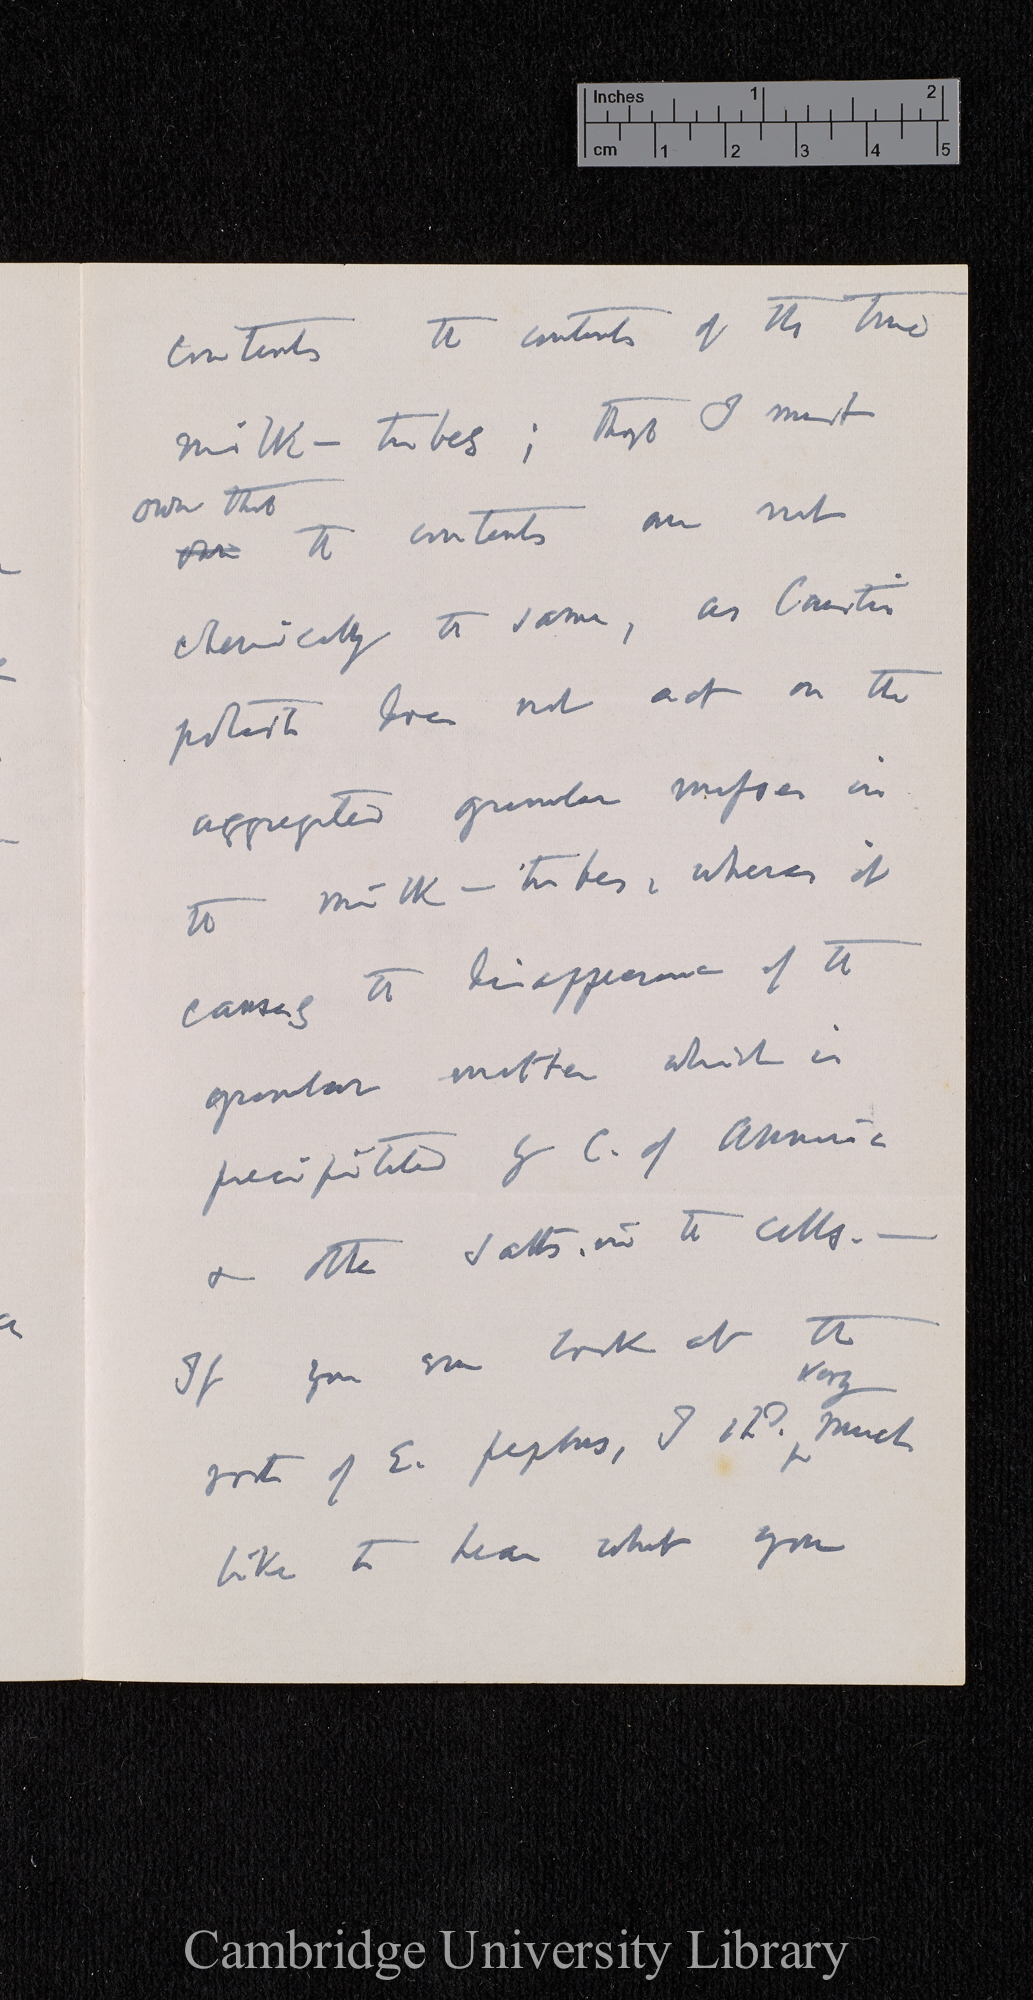 Inches 1 2
cm 1 2 3 4 5
contents the contents of the true
milk-tubes; thogh I must
own that
own the contents are not
chemically the same, as Caustic
potash does not act on the
aggregated granular masses in
the milk-tubes, whereas it
causes the disappearance of the
granular matter which is
precipitated by C. of Ammonia
& other salts in the cells.—
If you ever look at the
very
roots of E. peplus, I shd. much
like to hear what you
Cambridge University Library